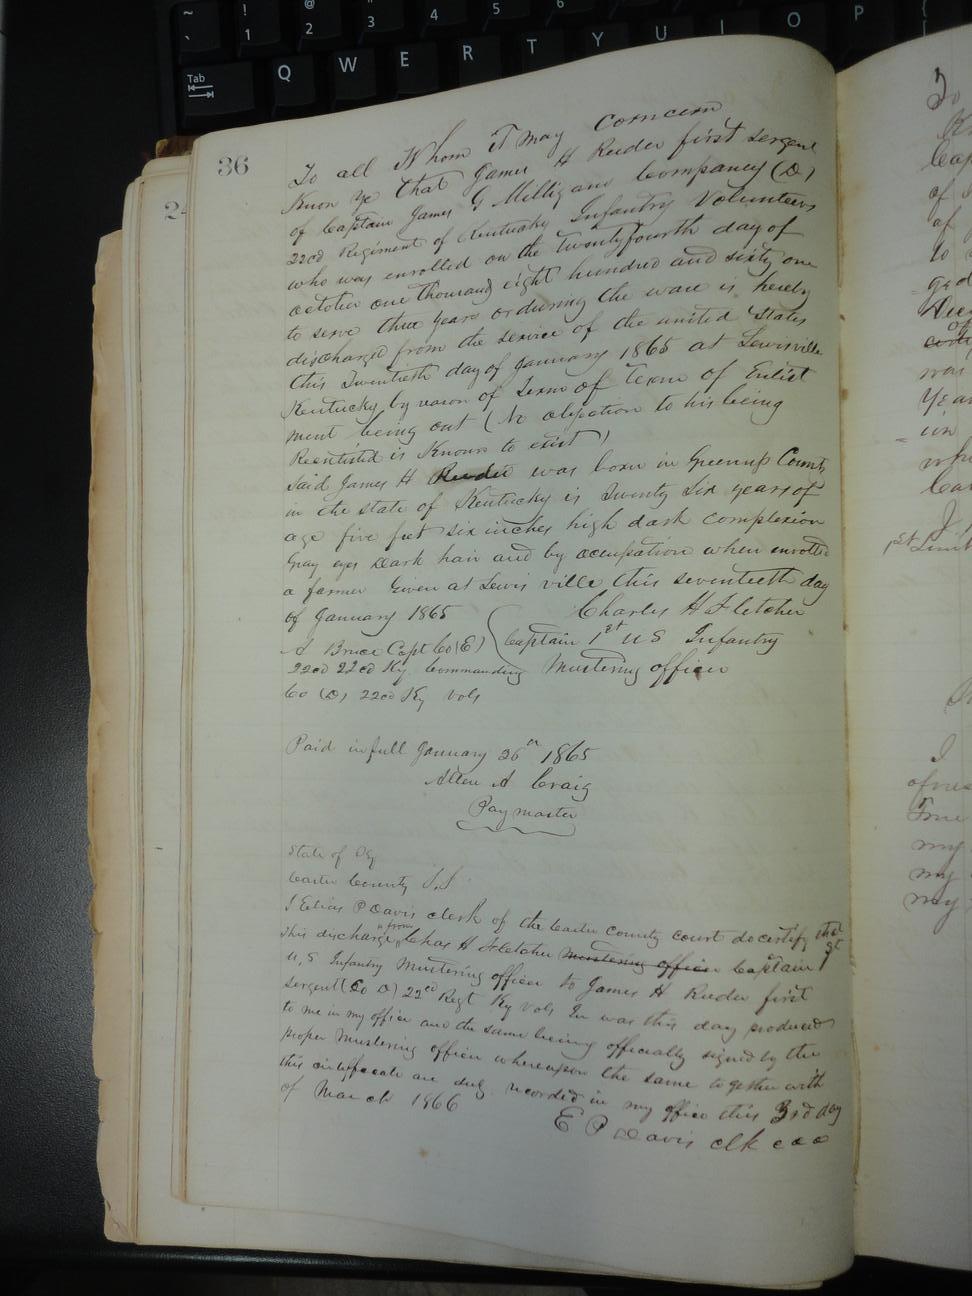 ~ ! @ # $ % ^ & * ( )
` 1 2 3 4 5 6 7 8 9 0
Tab Q W E R T Y U I O P {
[
36
24
To all Whom it may Conncern
Know ye that James H Reeder first sergent
of Captain James G Milligans Compancy (D)
22cd Regiment of Kentucky Infantry Volunteers
who was enrolled on the twentyfourth day of
october one thousand eight hundred and sixty one
to serve three years or during the ware is hereby
discharged from the service of the united States
this Twentieth day of January 1865 at Lewisville
Kentucky by reason of Term of Term of Enlist
ment being out (No objection to his being
Reenlisted is Known to exist)
Said James H Reeder was born in Greenup County
in the state of Kentucky is Twenty Six years of
age five feet six inches high dark complexion
Gray eyes Dark hair and by occupation when enrolled
a farmer Given at Lewis ville this seventeeth day
of January 1865 Charles H Fletcher
A Bruce Capt Co (E) Captain 1st U S Infantry
22cd 22cd Ky Commanding Mustering officer
Co (D) 22cd Ky Vols
Paid in full January 26th 1865
Allen A Craig
Pay master
State of Ky
Carter County S.S
I Elias P Davis clerk of the Carter County court do certify that
this discharge from Chas H Fletcher mustering officer Captain 1st
U,S Infantry Mustering officer to James H Reeder first
sergent (Co D) 22cd Regt Ky Vols In was this day produced
to me in my office and the same being officially signed by the
proper Mustering officer whereupon the same together with
this certificate are duly recorded in my office this 3rd day
of March 1866
E P Davis clk ccc
To
Cap
of
of
to
was
Yea
in
whe
I
I
True
my
my
my